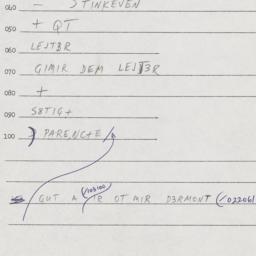 040 — STINKEVEN
050 + QT
060 LEJTBR
070 GIMIR DEM LEJTBR
080 +
090 S8TIG+
100 PARENC+E /
GUT A /IR OT MIR D3RMONT (/022061